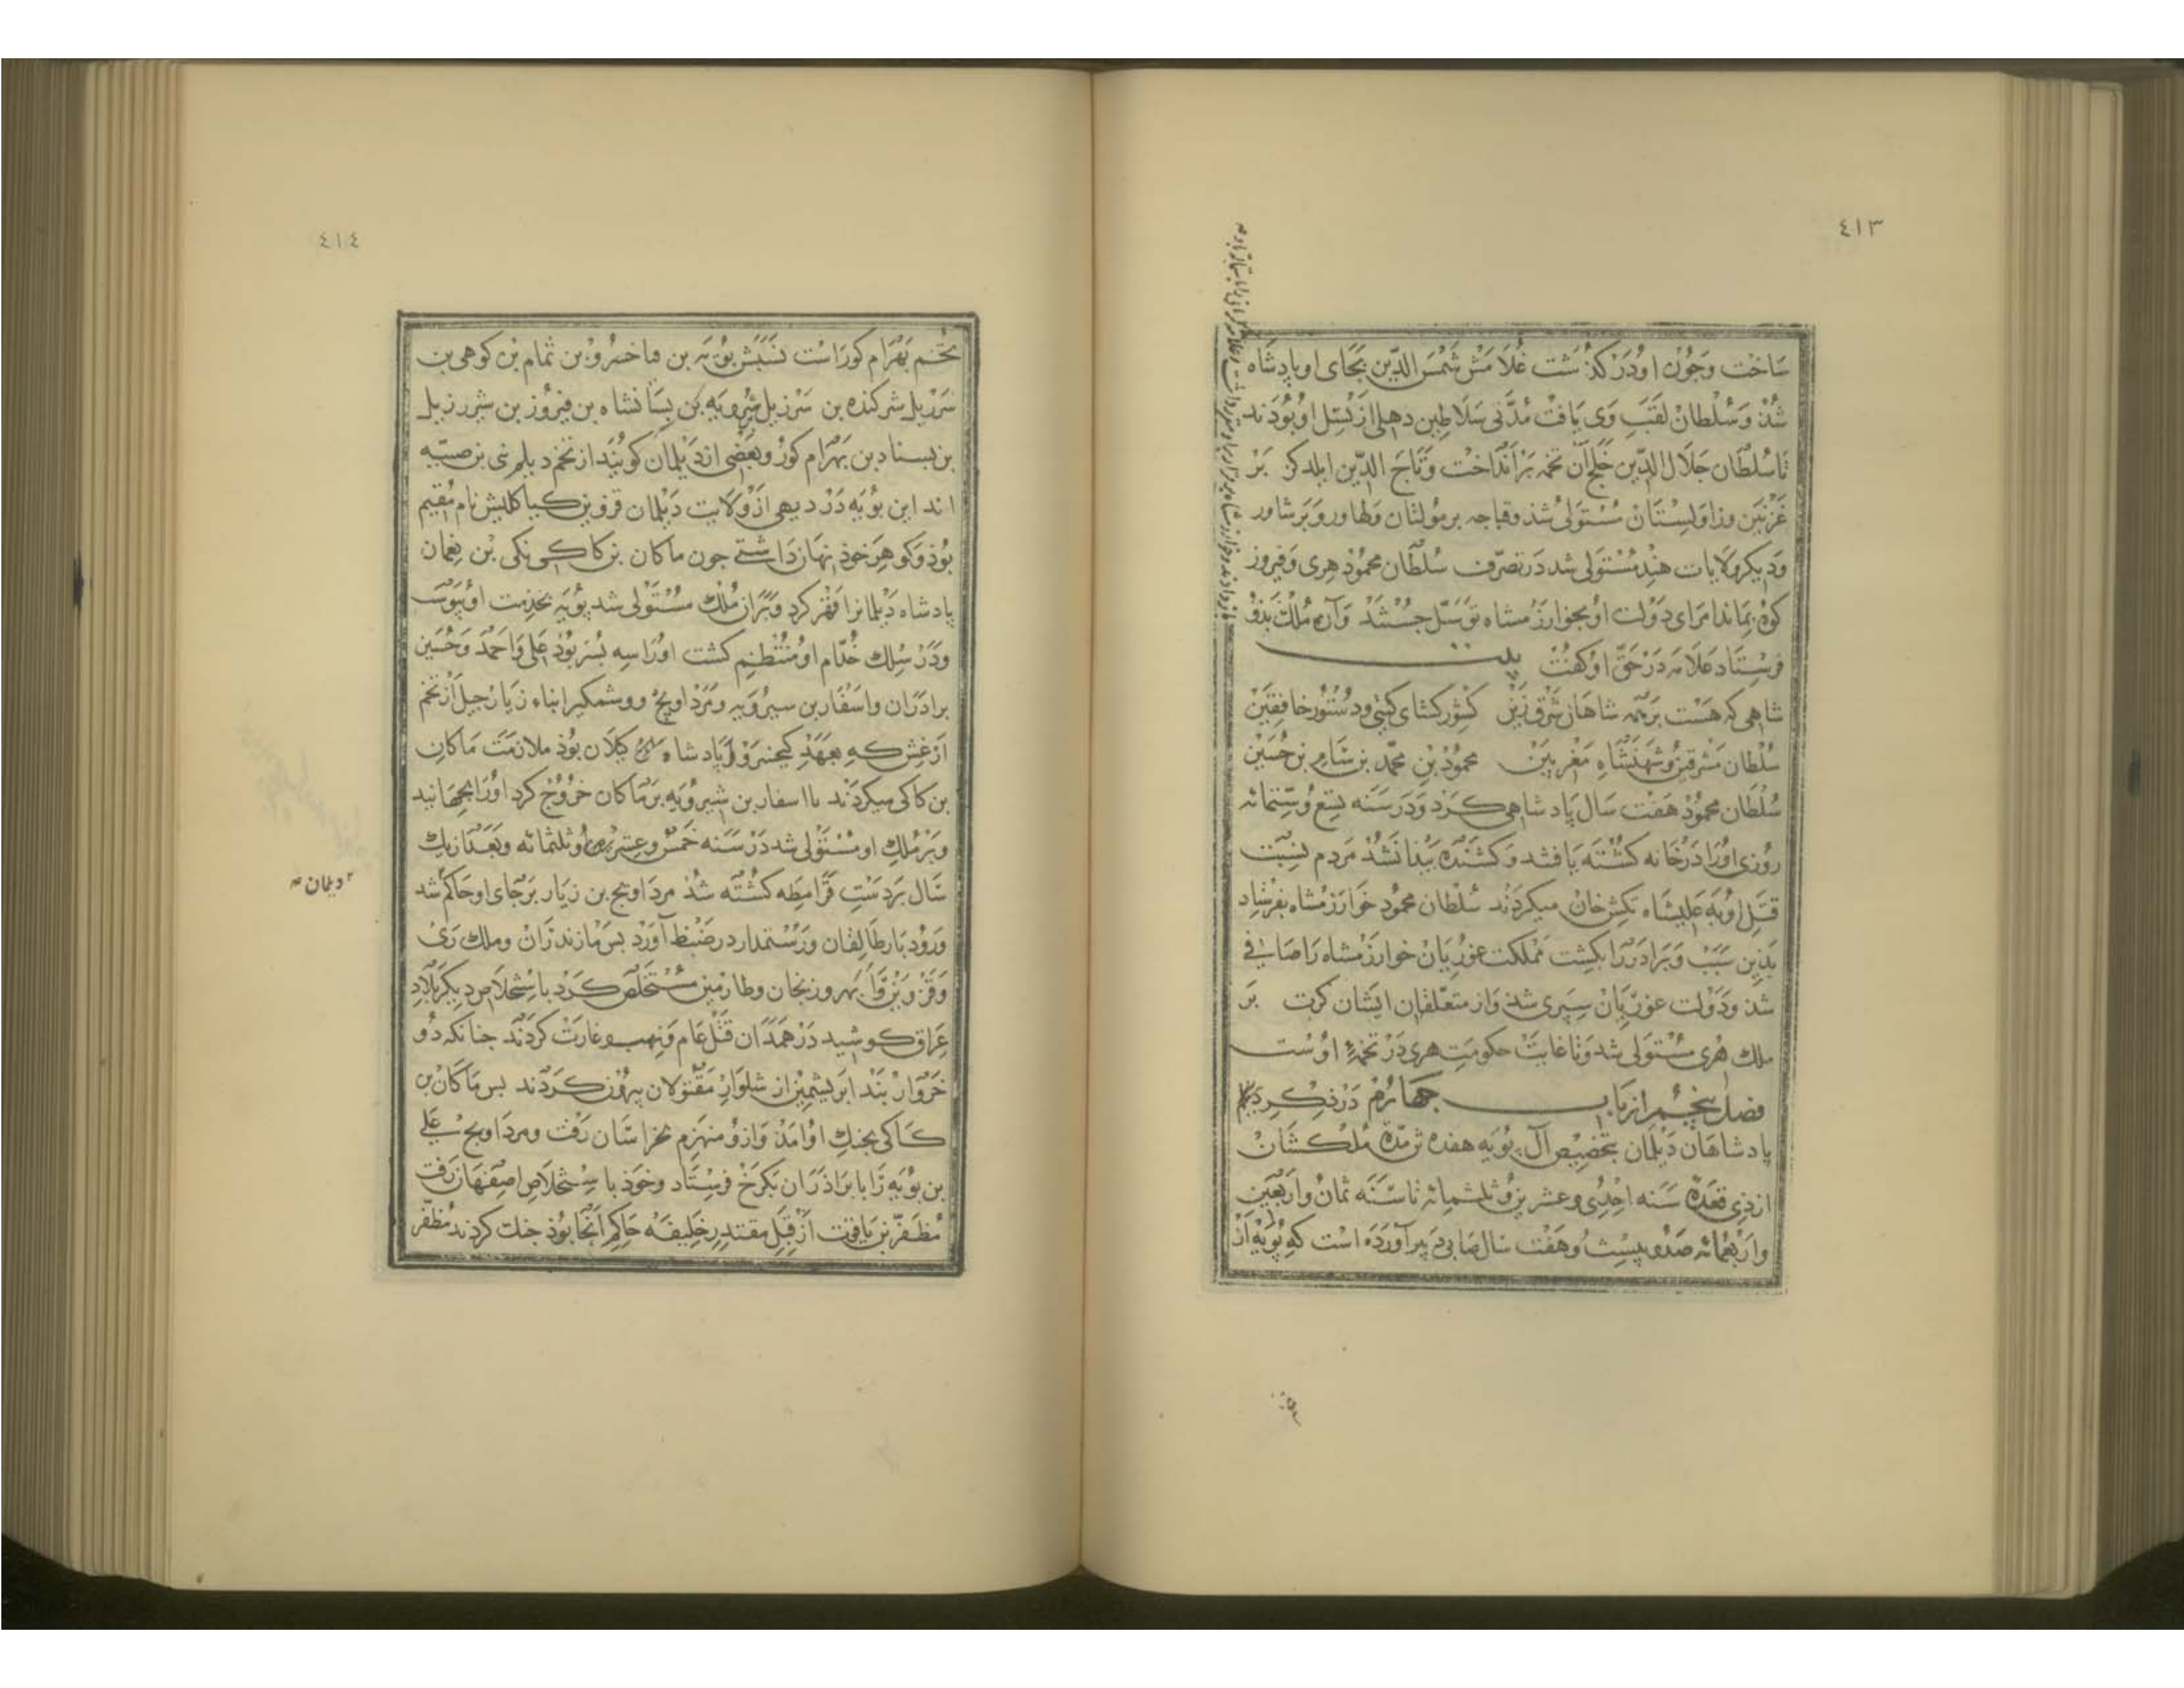 ٤١٣
ساخت وجون او درکذشت غلامش شمس الدین بجای او پادشاه
شذ و سلطان لقب وی یافت مدتی سلاطین دهلی از نسل او بوذند
تا سلطان جلال الدین خلج آن تخمه برانداخت و تاج الدین ایلدکز بر
غزنین وزاولستان مستولی شذ وقباجه بر مولتان ولهاور وبرشاور
ودیکر ولایات هند مستولی شد در تصرف سلطان محموذ هری وفیروز
کوه بماند امرای دولت او بخوارزمشاه توسل جستند وآن ملک بذو
فرستاد علامه در حق او کفت بیت
شاهی که هست بر همه شاهان شرق زین کشور کشای کیتی ودستور خافقین
سلطان مشرقین وشهنشاه مغربین محمود بن محمد بن سام بن حسین
سلطان محموذ هفت سال پادشاهی کرد ودر سنه تسع وستمائه
روزی اورا در خانه کشته یافتند وکشنده پیدا نشذ مردم نسبت
قتل او به علیشاه تکش خان میکردند سلطان محمود خوارزمشاه بفرستاد
بذین سبب وبرادر را بکشت مملکت غوریان خوارزمشاه را صافی
شذ ودولت غوریان سپری شذ واز متعلقان ایشان کرت بر
ملک هری مستولی شد وتا غایت حکومت هری در تخمه اوست
فصل پنجم از باب چهارم در ذکر
پادشاهان دیلمان بتخصیص آل بویه هفده تن مدة ملکشان
از ذی قعدة سنه احدی وعشرین وثلثمائه تا سنه ثمان واربعین
واربعمائه صدو بیست وهفت سال صابی در آورده است که بویه از
٤١٤
تخم بهرام کوراست نسبش بویه بن فناخسرو بن تمام بن کوهی بن
شیرزیل شیرکنده بن شیرزیل شیرویه بن بستانشاه بن فیروز بن شیرزیل
بن بسناد بن بهرام کور وبعضی از دیلمان کویند از تخم دیلم بنی بن ضبه
اند این بویه در دیهی از ولایت دیلمان قزوین کیاکلیش نام مقیم
بوذ وکوهر خوذ نهان داشتی جون ماکان بن کاکی بن نعمان
پادشاه دیلمانرا قهر کرد وبران ملک مستولی شد بویه بخدمت او پیوست
ودر سلک خدام او منتظم کشت اورا سه پسر بوذ علی واحمد وحسین
برادران واسفار بن سیرویه ومرداویج ووشمکیر ابناء زیار جیل از تخم
ارغش که بعهد کیخسرو پادشاه کیلان بوذ ملازمت ماکان
بن کاکی میکردند با اسفار بن شیرویه بر ماکان خروج کرد اورا بجهانید
وبر ملک او مستولی شد در سنه خمس وعشر وثلثمائه وبعد از یک
سال بر دست قرامطه کشته شذ مرداویج بن زیار بر جای او حاکم شد
ورودبار طالقان ورستمدار در ضبط آورد بس مازندران وملک ری
وقزوین وابهر وزنجان وطارمین مستخلص کرد باستخلاص دیکر بلاد
عراق کوشید در همدان قتل عام ونهب وغارت کردند جنانکه دو
خروار بند ابریشمین از شلوار مقتولان بیرون کردند بس ماکان بن
کاکی بجنک او آمذ وازو منهزم بخراسان رفت ومرداویج علی
بن بویه را با براذران بکرخ فرستاد وخوذ باستخلاص اصفهان رفت
مظفر بن یاقوت از قبل مقتدر خلیفه حاکم آنجا بوذ جنک کردند مظفر
ودیلمان